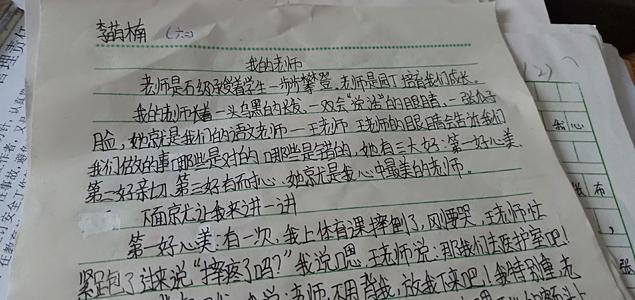 李苗楠 (六二)
我的老师
老师是石级承载着学生一步步攀登,老师是园丁培育我们成长。
我的老师扶着一头乌黑的长发,一双会"说话"的眼睛,一张瓜子
脸,她就是我们的语文老师—王老师 王老师的眼睛会告诉我们
我们做的事哪些是对的哪些是错的,她有三大好:第一好心美,
第二好亲切,第三好有耐心,她就是我心中最美的老师。
下面就让我来讲一讲
第一好心美:有一次,我上体育课摔倒了,刚要哭,王老师忙
紧跑了过来说"摔疼了吗?"我说:嗯 王老师说:那我们去医护室吧!
老师,不用背我,放我下来吧!我特别重